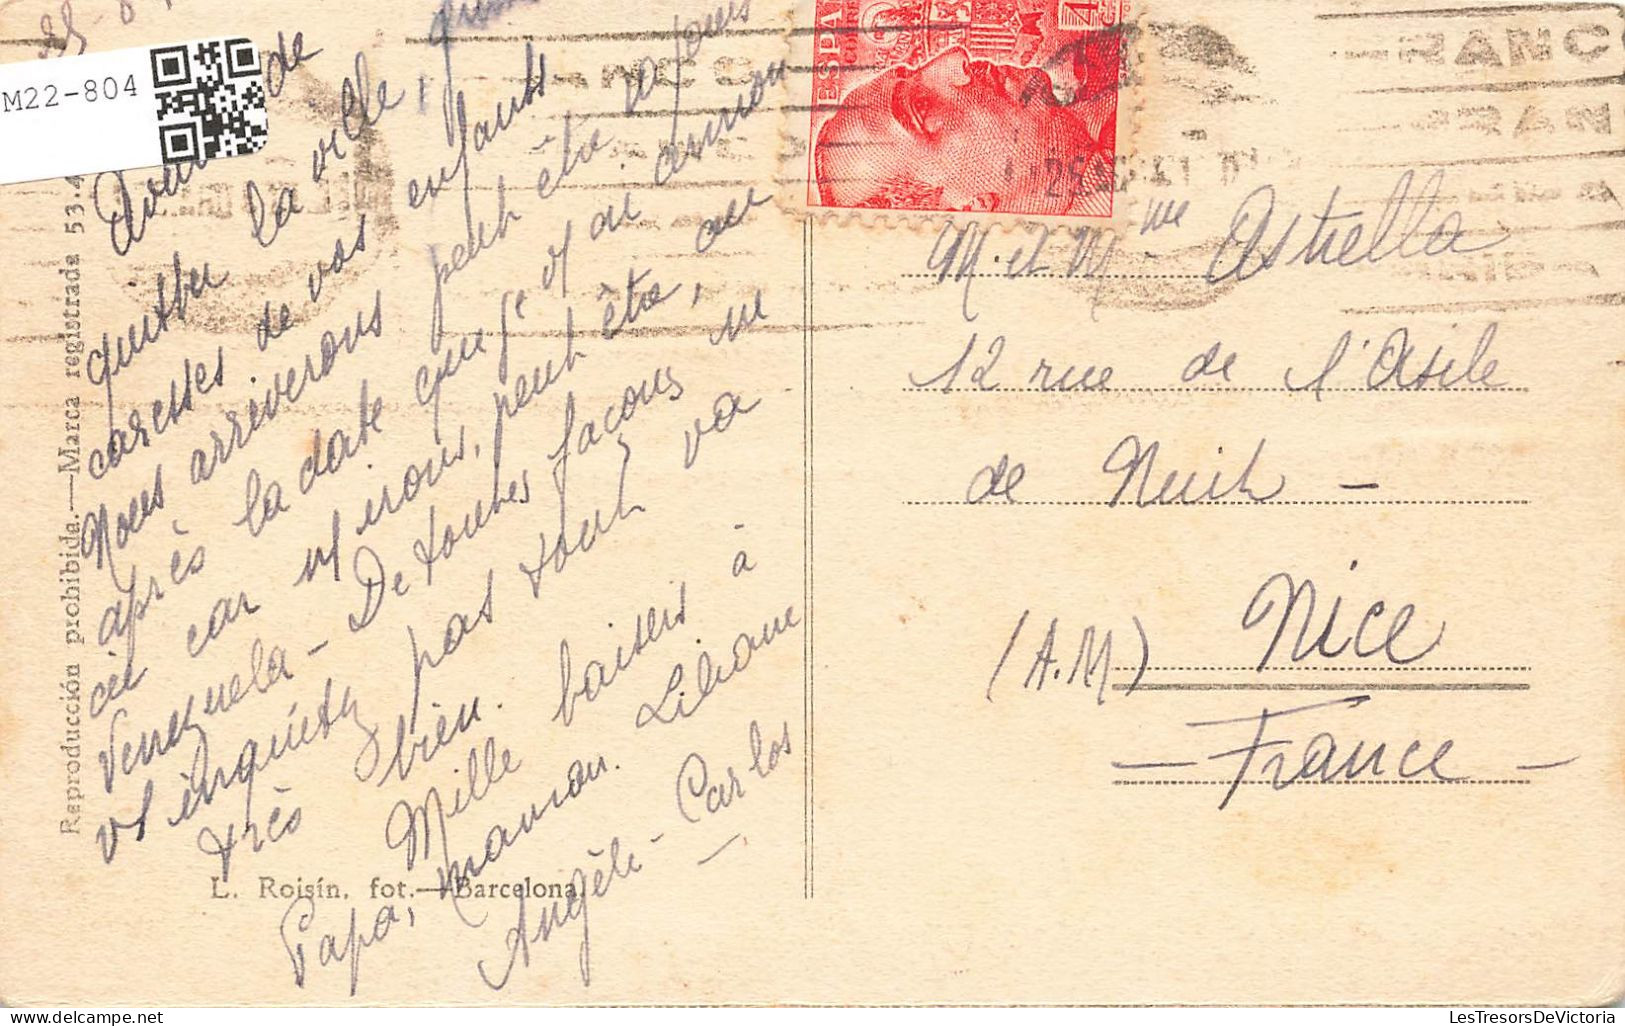 M22-804
de
quitter la ville,
caresses de vos enfants
Nous arriverons peut être 10 jours
après la date que je
ci car
ns irons, peut être, au
Venezuela - De toutes façons ne
vs inquietez pas tout va
très bien.
Mille baisers à
Papa, maman. Liliane
Angèle - Carlos
Reproducción prohibida.—Marca registrada 53.4
L. Roisín, fot.—Barcelona.
ESPAÑA
CORREOS
M. et Mme Astrella
12 rue de l'Asile
de Nuit -
Nice
(A.M)
- France -
LesTresorsDeVictoria